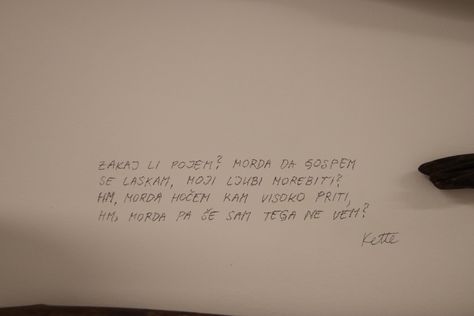 ZAKAJ LI POJEM? MORDA DA GOSPEM
SE LASKAM, MOJI LJUBI MOREBITI?
HM, MORDA HOČEM KAM VISOKO PRITI,
HM, MORDA PA ČE SAM TEGA NE VEM?
Kette